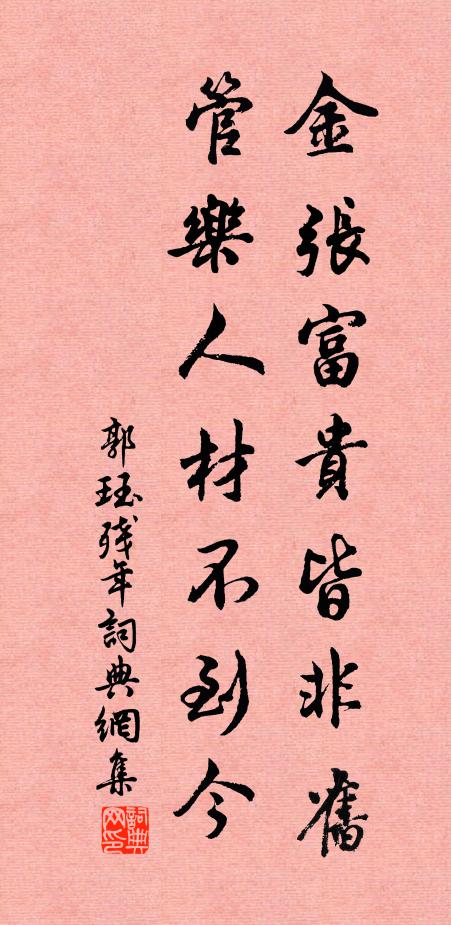 金張富貴皆非舊
管樂人材不到今
郭珏殘年詞典網集
詞典网印